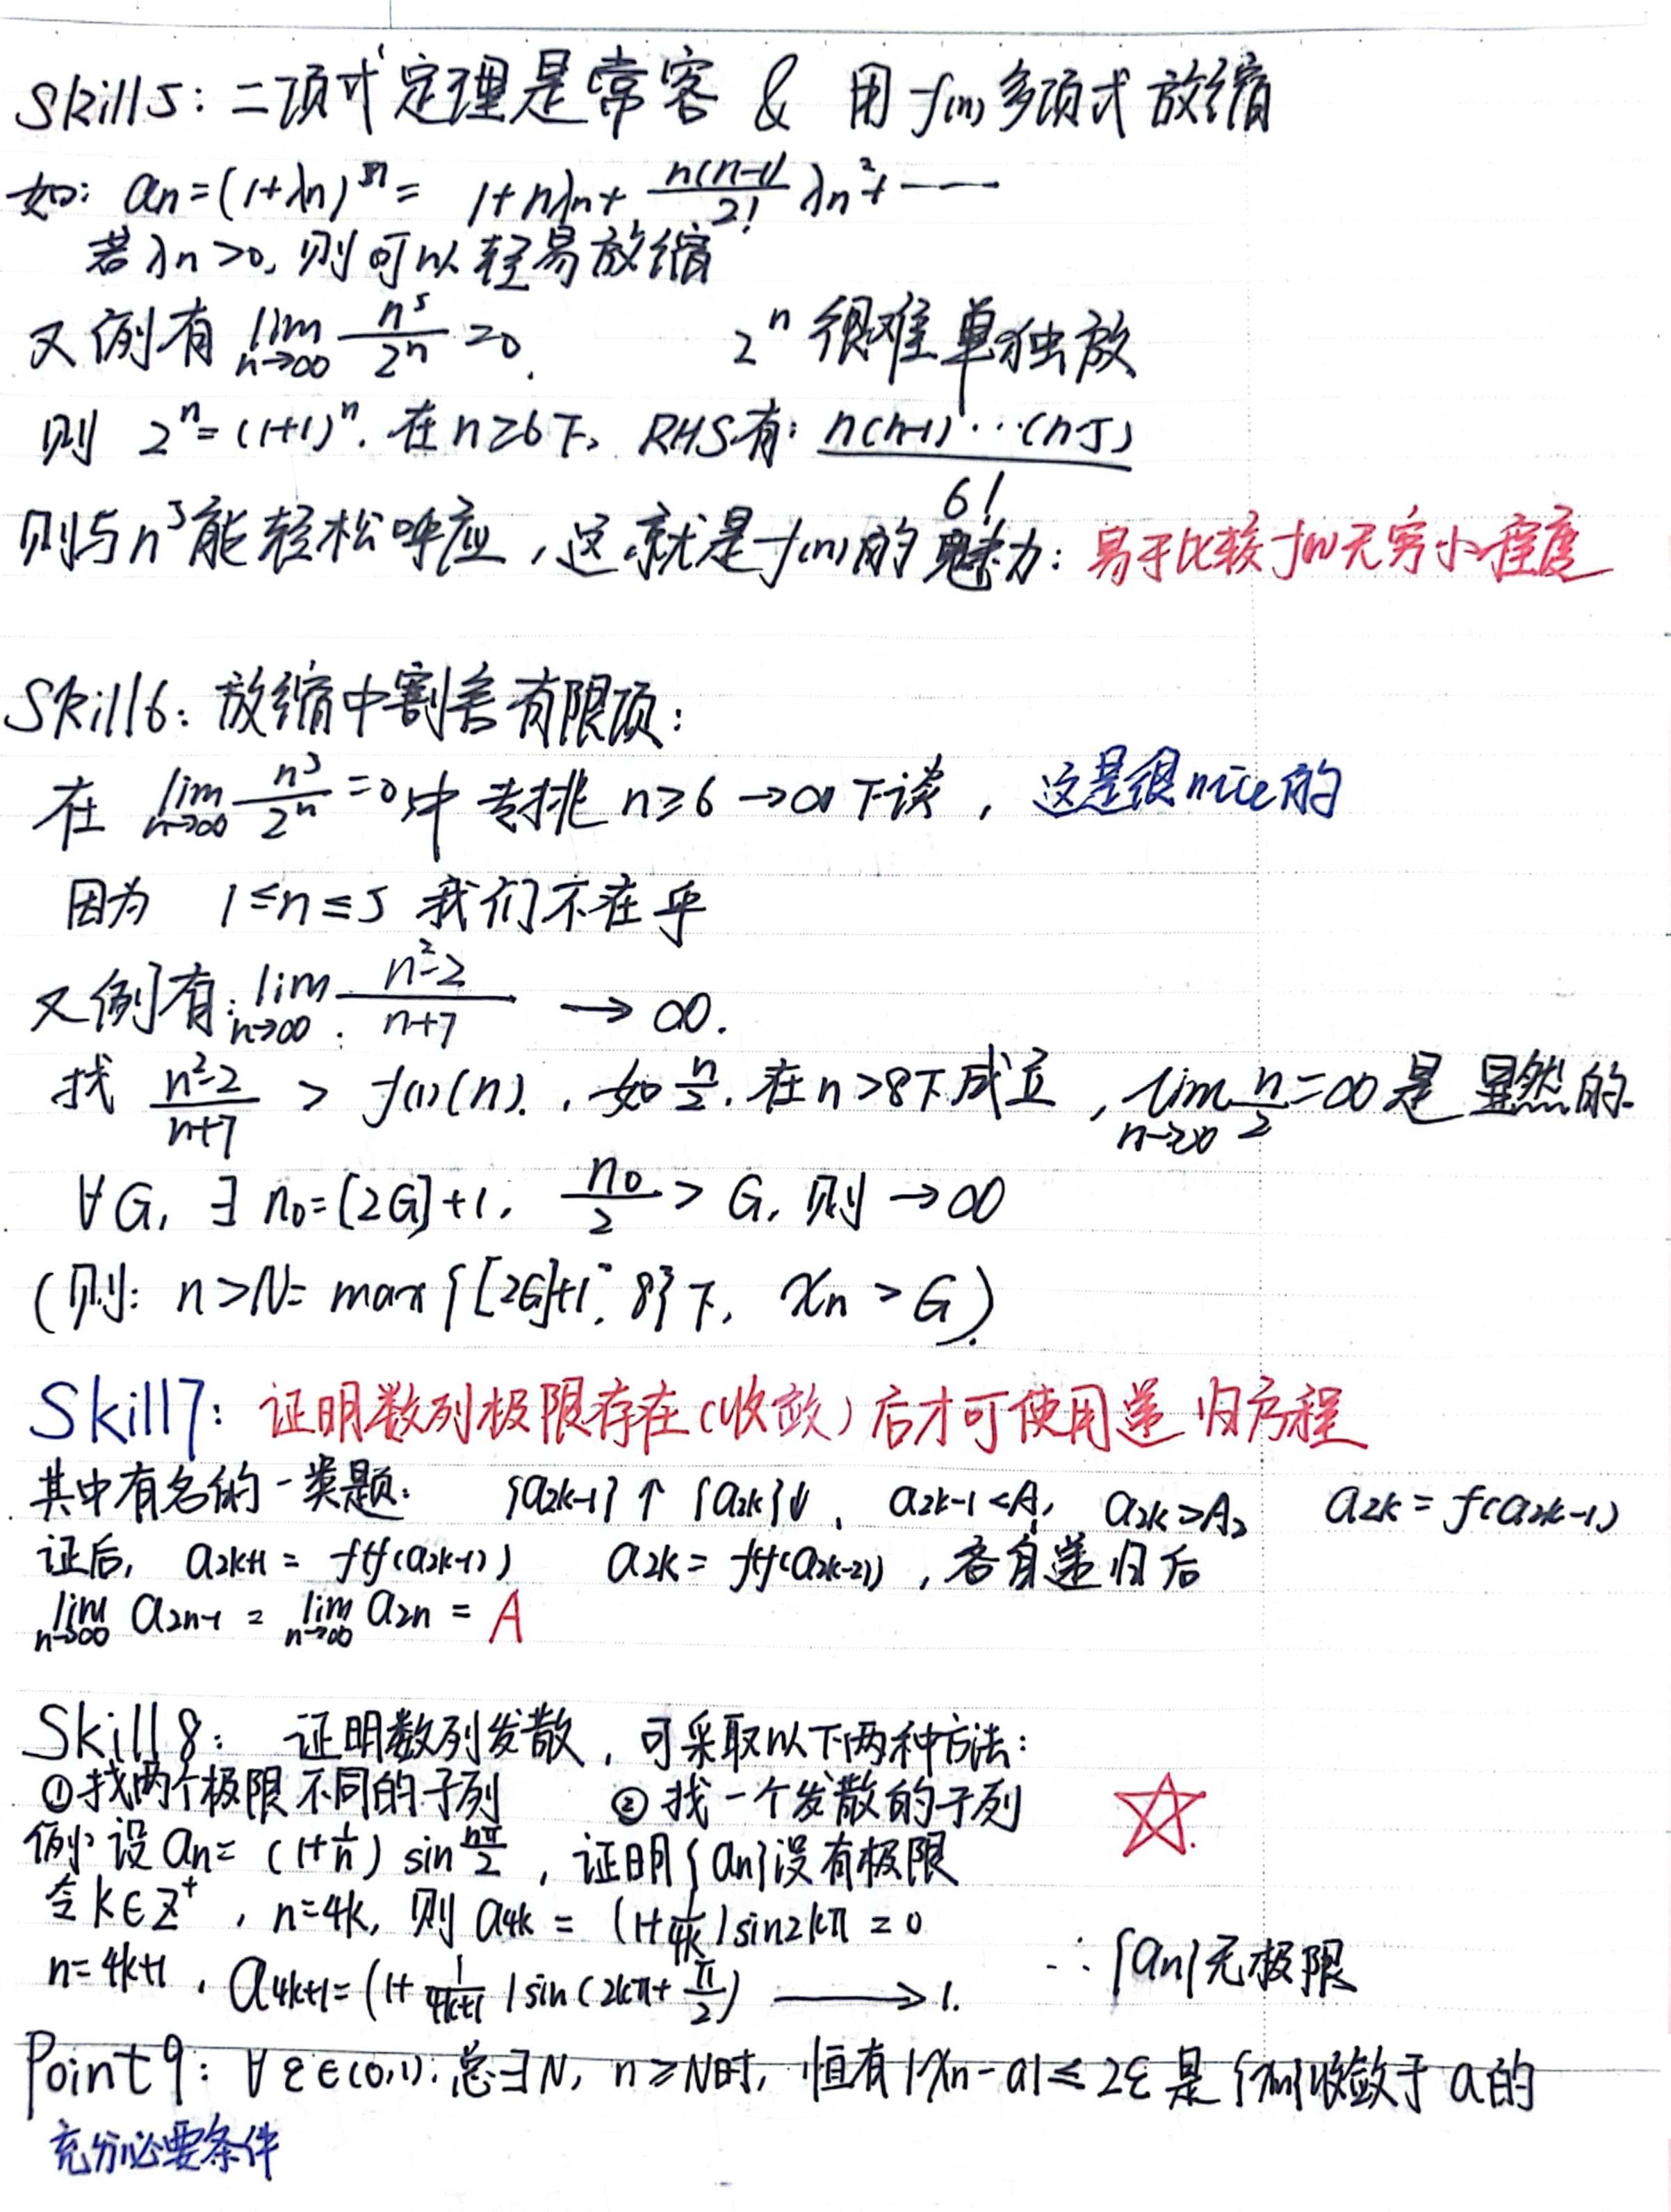 Skill5: 二项式定理是常客 & 用f(n)多项式放缩
如: an=(1+λn)^n= 1+nλn+ n(n-1)/2! λn²+ ……
若λn>0, 则可以轻易放缩
又例有 lim n→∞ n⁵/2ⁿ =0. 2ⁿ 很难单独放
则 2ⁿ=(1+1)ⁿ. 在n≥6下, RHS有: n(n-1)···(n-5)/6!
则与n³能轻松呼应,这就是f(n)的魅力: 易于比较f(n)无穷小程度
Skill6: 放缩中割舍有限项:
在 lim n→∞ n³/2ⁿ =0中 专挑 n≥6→∞下谈, 这是很nice的
因为 1≤n≤5 我们不在乎
又例有: lim n→∞ n²-2/n+7 → ∞.
找 n²-2/n+7 > f(1)(n). , 如 n/2. 在n>8下成立, lim n→∞ n/2=∞是 显然的
∀G, ∃ n₀=[2G]+1, n₀/2 > G, 则→∞
(则: n>N= max{[2G]+1, 8}下, xn > G).
Skill7: 证明数列极限存在(收敛)后才可使用递归方程
其中有名的一类题: {a2k-1}↑ {a2k}↓, a2k-1<A, a2k>A, a2k=f(a2k-1)
证后, a2k+1= f(f(a2k-1)) a2k= f(f(a2k-2)), 各自递归后
lim n→∞ a2n-1 = lim n→∞ a2n = A
Skill8: 证明数列发散, 可采取以下两种方法:
①找两个极限不同的子列 ②找一个发散的子列
例: 设an= (1+1/n) sin nπ/2, 证明{an}没有极限
令k∈Z⁺, n=4k, 则 a4k = (1+1/4k)sin2kπ = 0
n=4k+1, a4k+1= (1+ 1/4k+1)sin(2kπ+ π/2) → 1. ∴{an}无极限
Point9: ∀ε∈(0,1), 总∃N, n≥N时, 恒有|xn-a|≤2ε是{xn}收敛于a的
充分必要条件